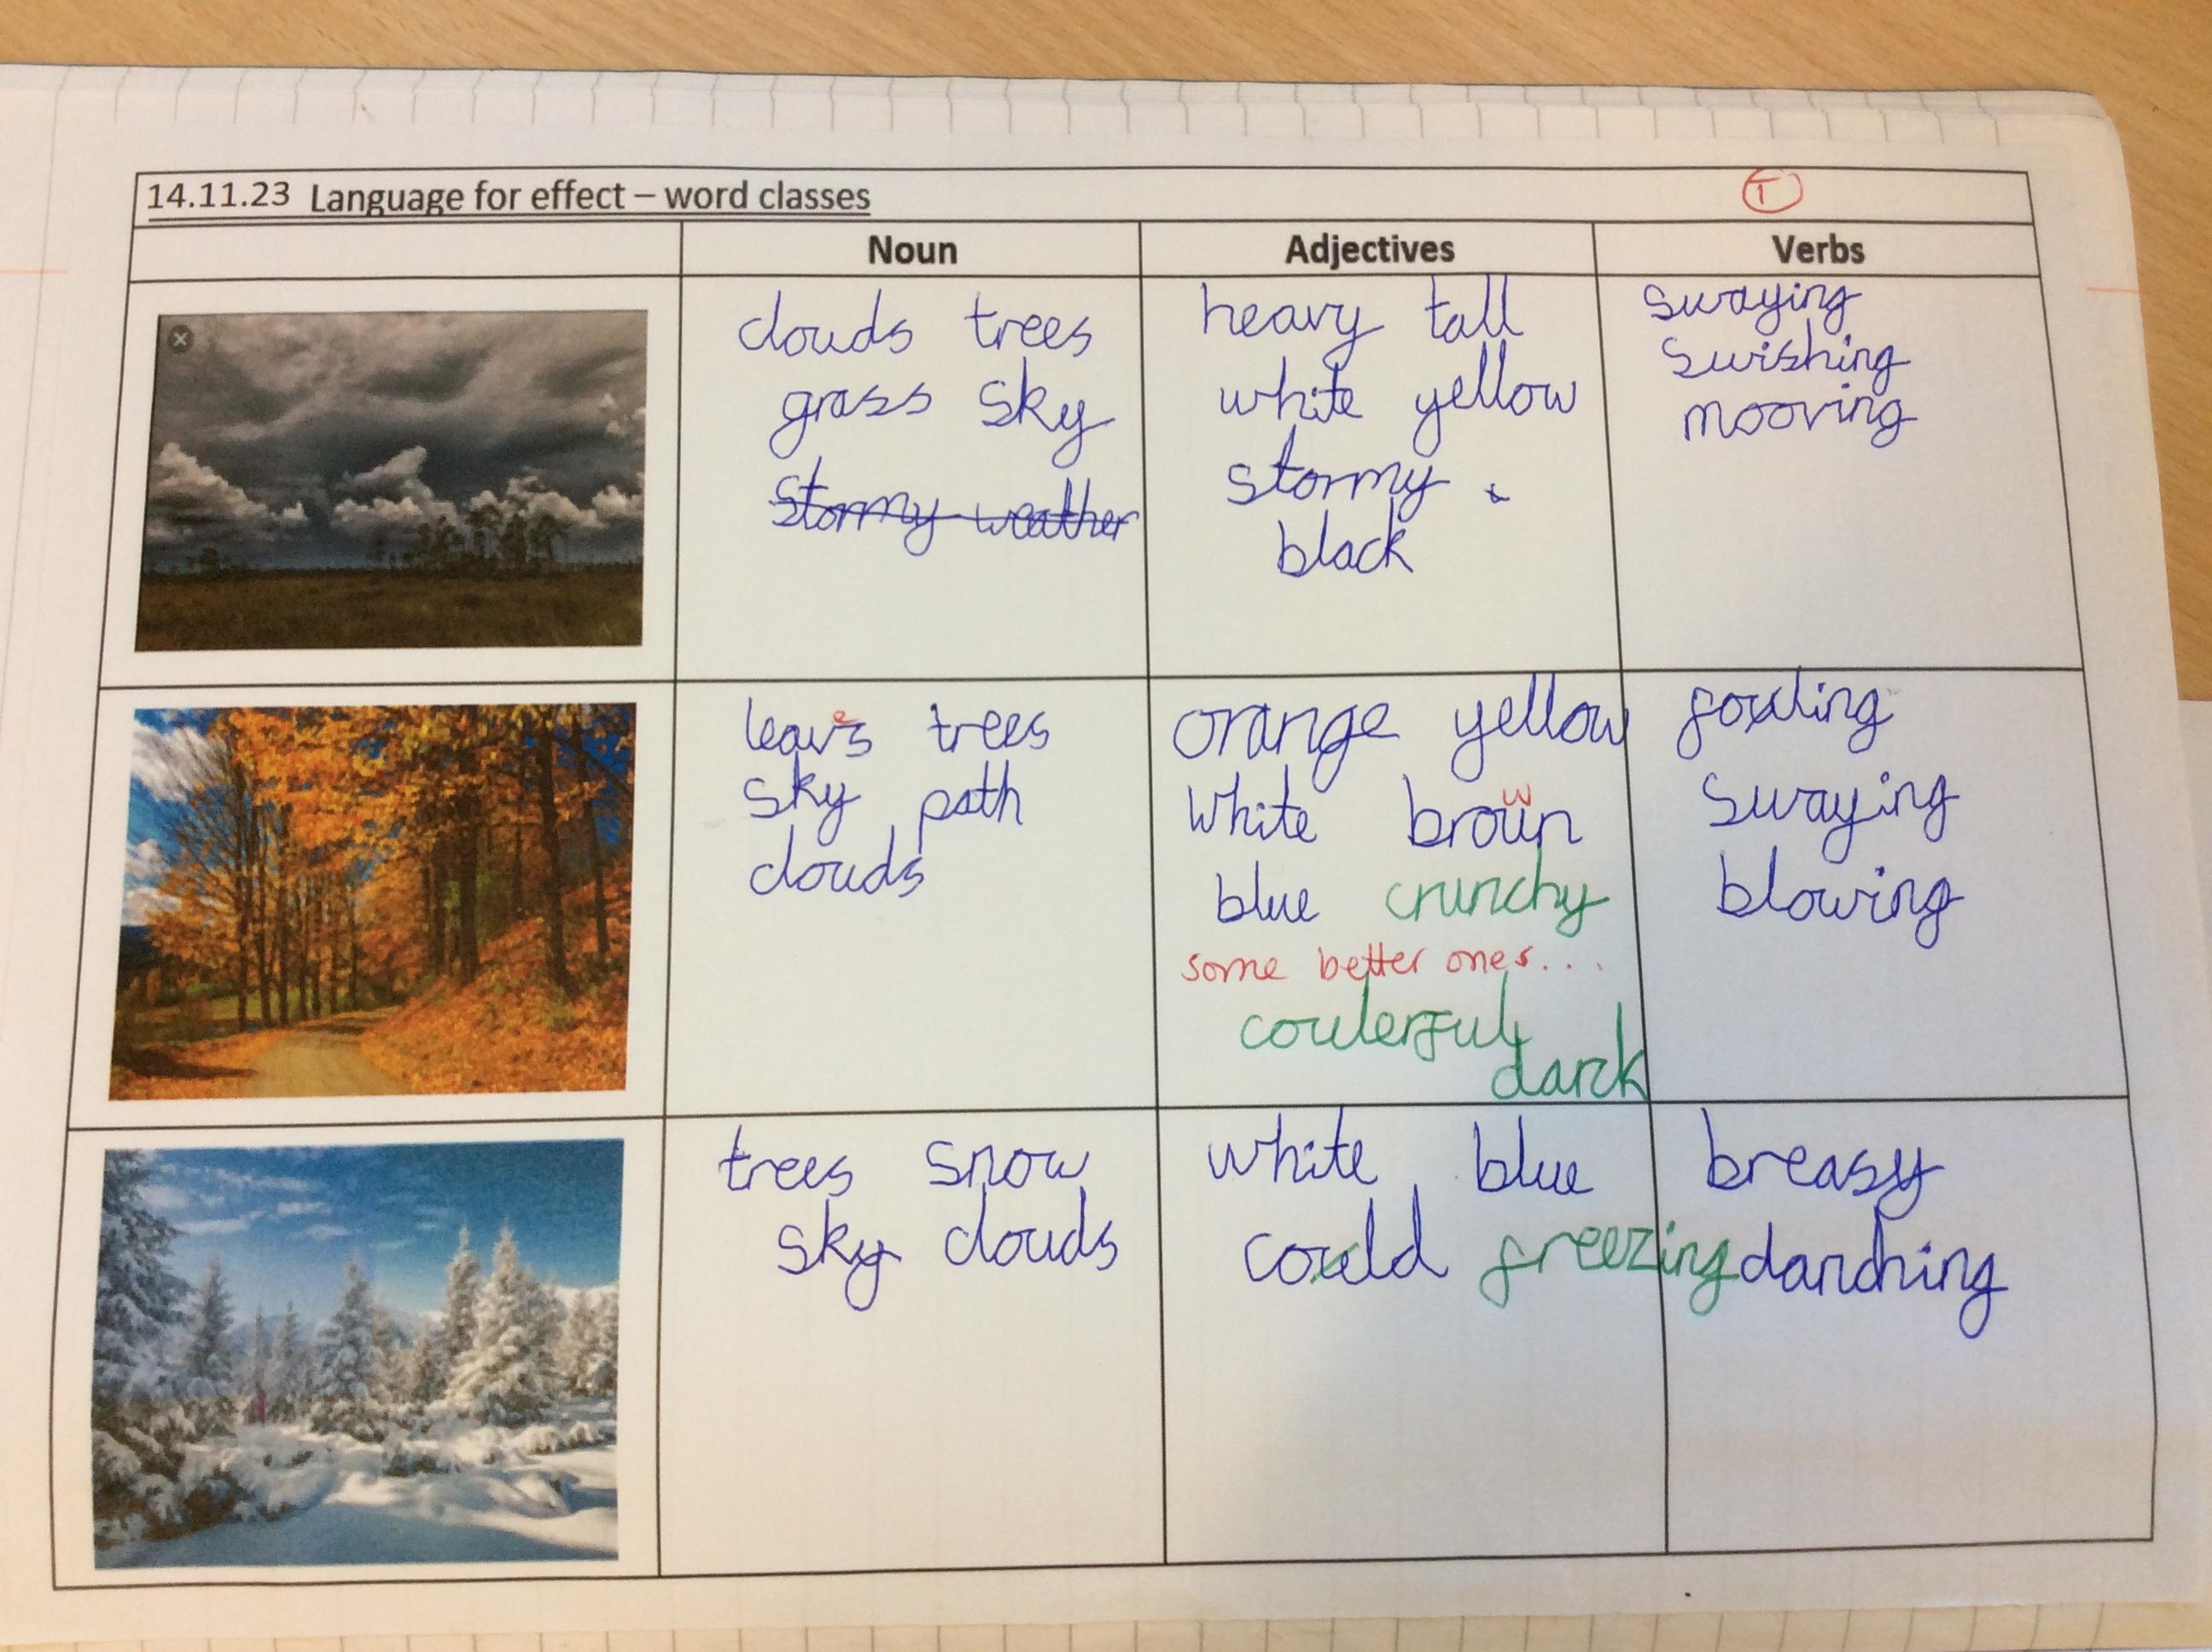 14.11.23 Language for effect – word classes
T
Noun
Adjectives
Verbs
clouds trees
grass sky
stormy weather
heavy tall
white yellow
stormy
black
swaying
swishing
mooving
leaves trees
sky path
clouds
orange yellow
white brown
blue crunchy
some better ones...
coulerful
darck
swaying
blowing
trees snow
sky clouds
white blue
could freezing
breasy
danching